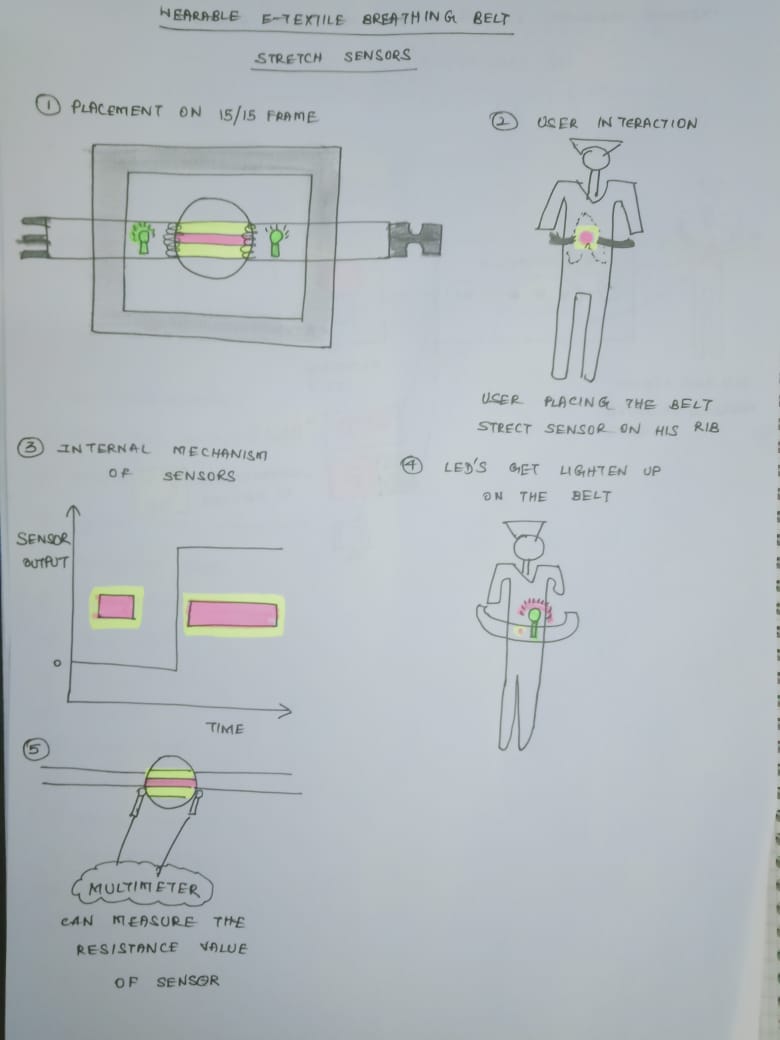 WEARABLE E-TEXTILE BREATHING BELT
STRETCH SENSORS
① PLACEMENT ON 15/15 FRAME
② USER INTERACTION
USER PLACING THE BELT
STRECT SENSOR ON HIS RIB
③ INTERNAL MECHANISM
OF SENSORS
SENSOR
OUTPUT
0
TIME
④ LED'S GET LIGHTEN UP
ON THE BELT
⑤
MULTIMETER
CAN MEASURE THE
RESISTANCE VALUE
OF SENSOR